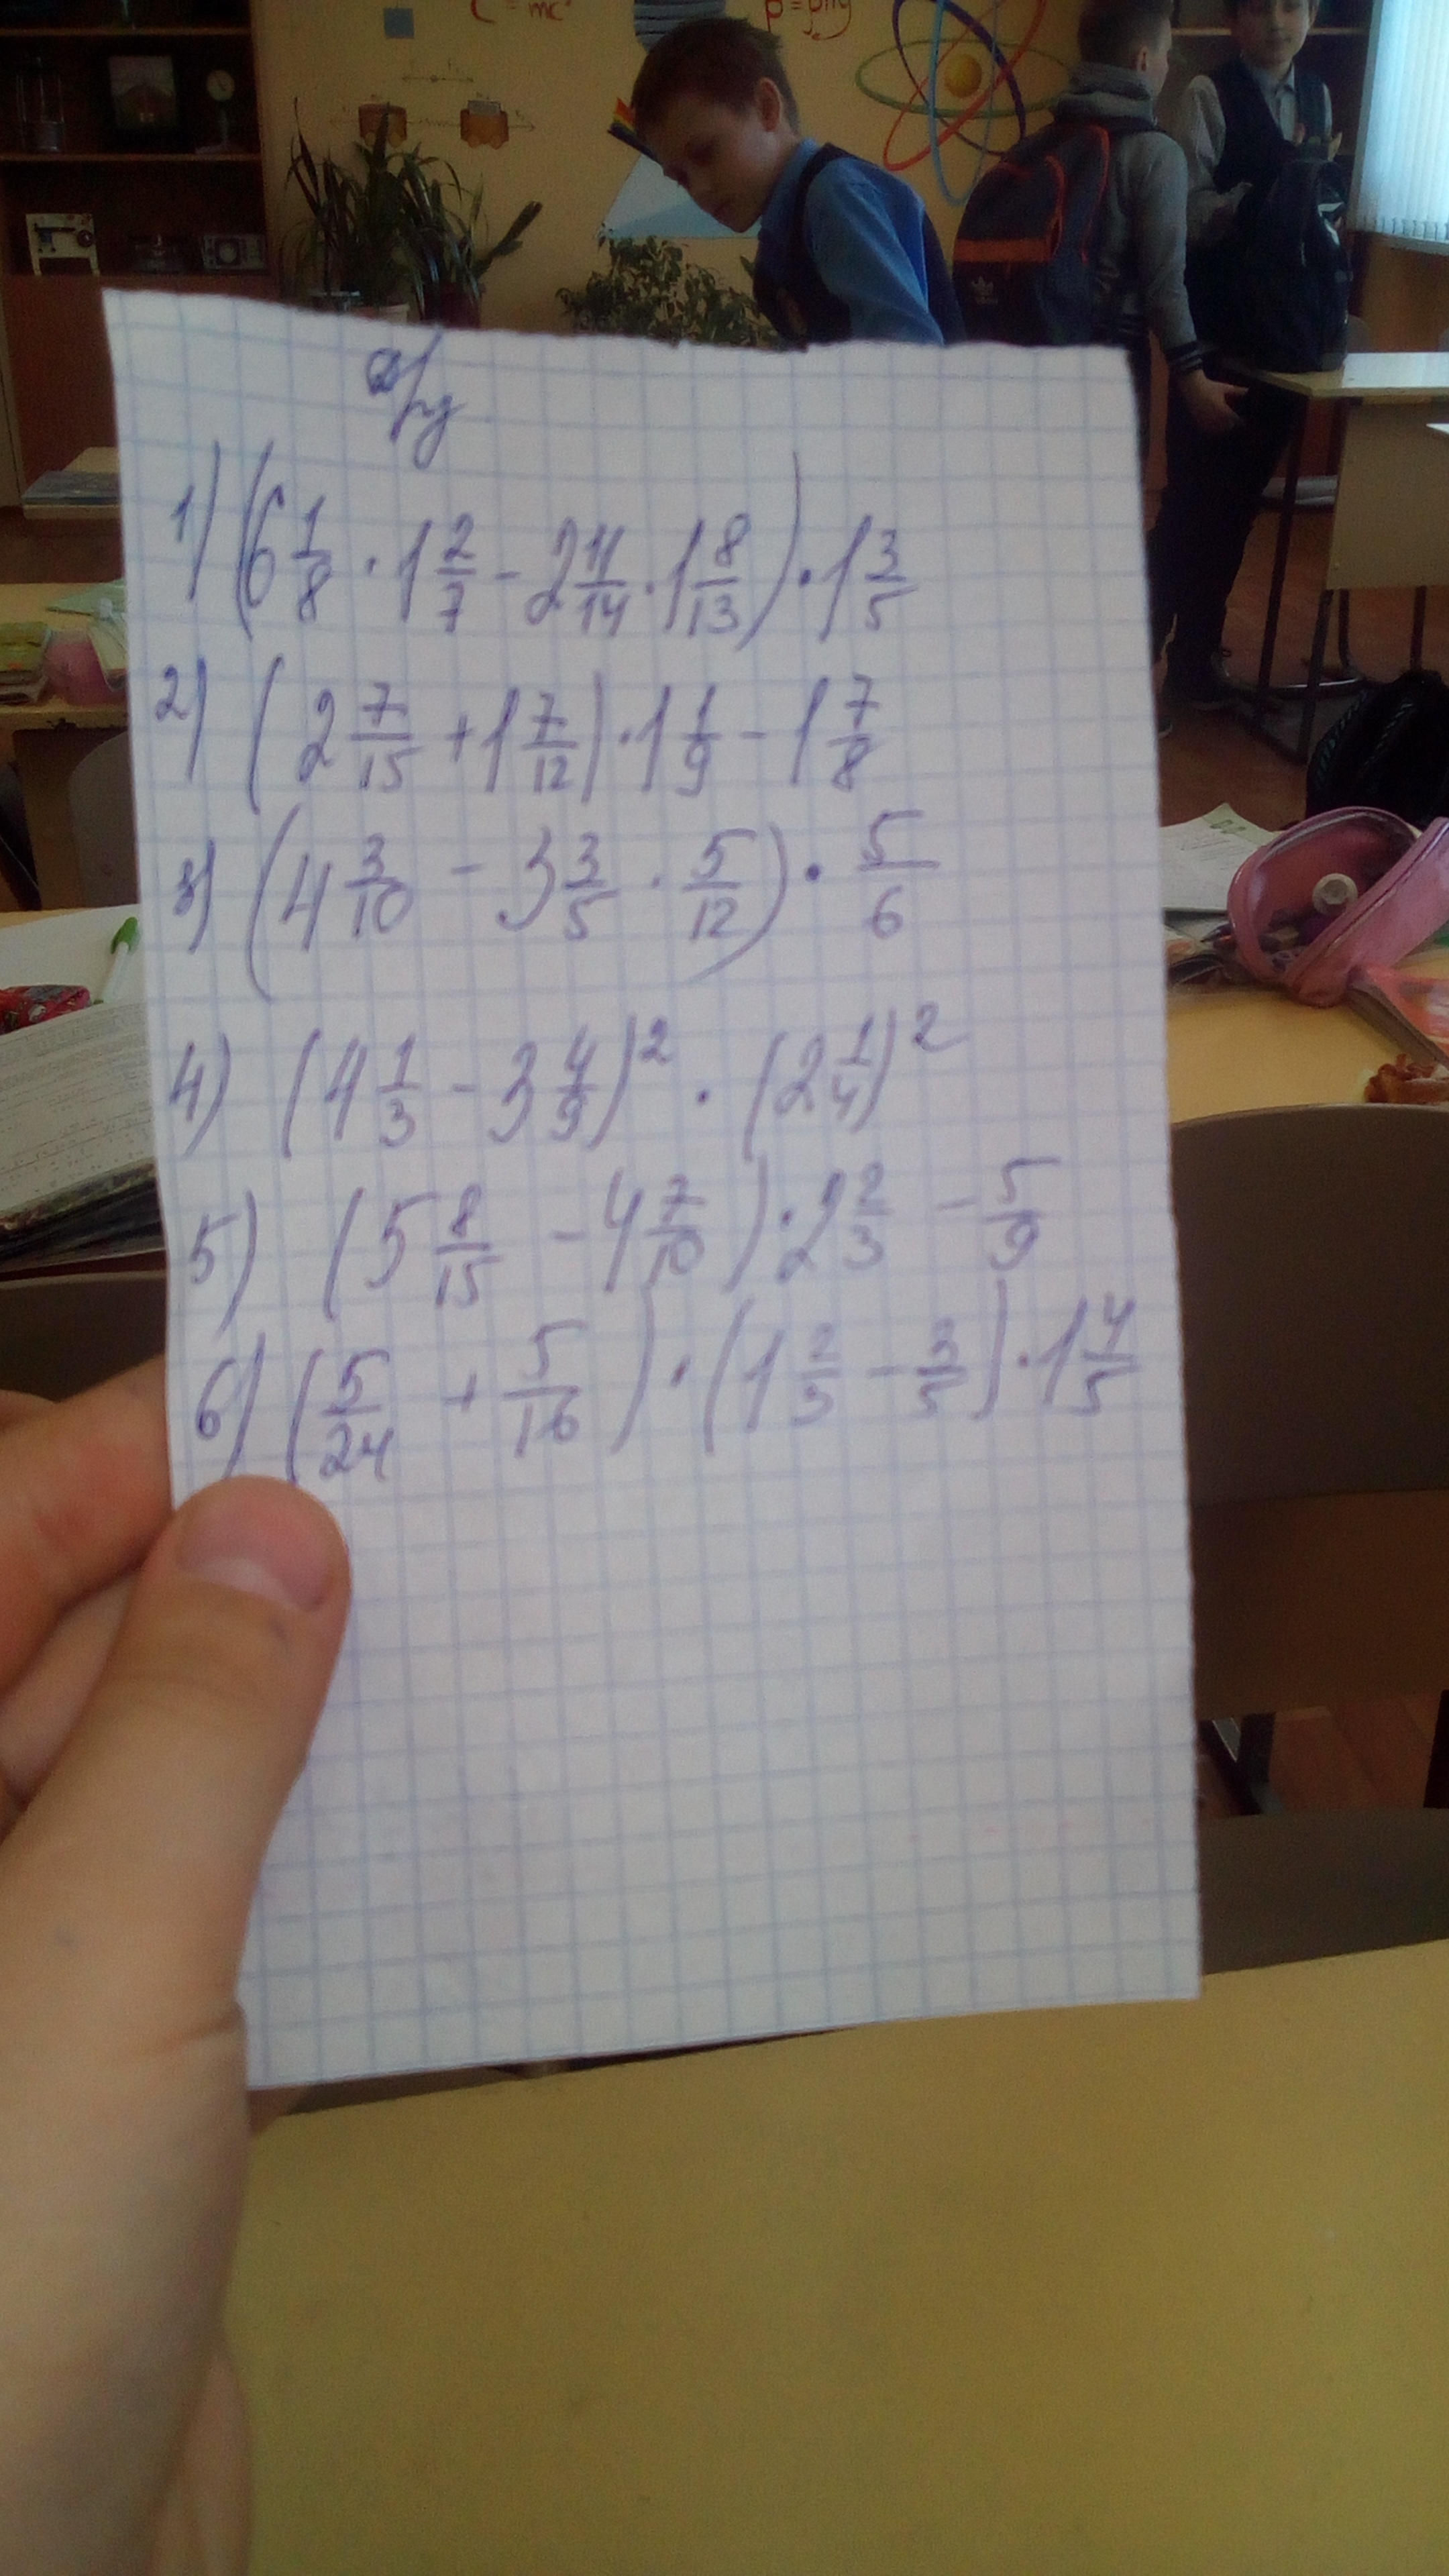 C = mc²
д/з
1) (6 1/8 · 1 2/7 - 2 11/14 · 1 8/13) · 1 3/5
2) (2 7/15 + 1 7/12) · 1 1/9 - 1 7/8
3) (4 3/10 - 3 3/5 · 5/12) · 5/6
4) (4 1/3 - 3 4/9)² · (2 1/4)²
5) (5 8/15 - 4 7/10) · 2 2/3 - 5/9
6) (5/24 + 5/16) · (1 2/3 - 3/5) · 1 4/5